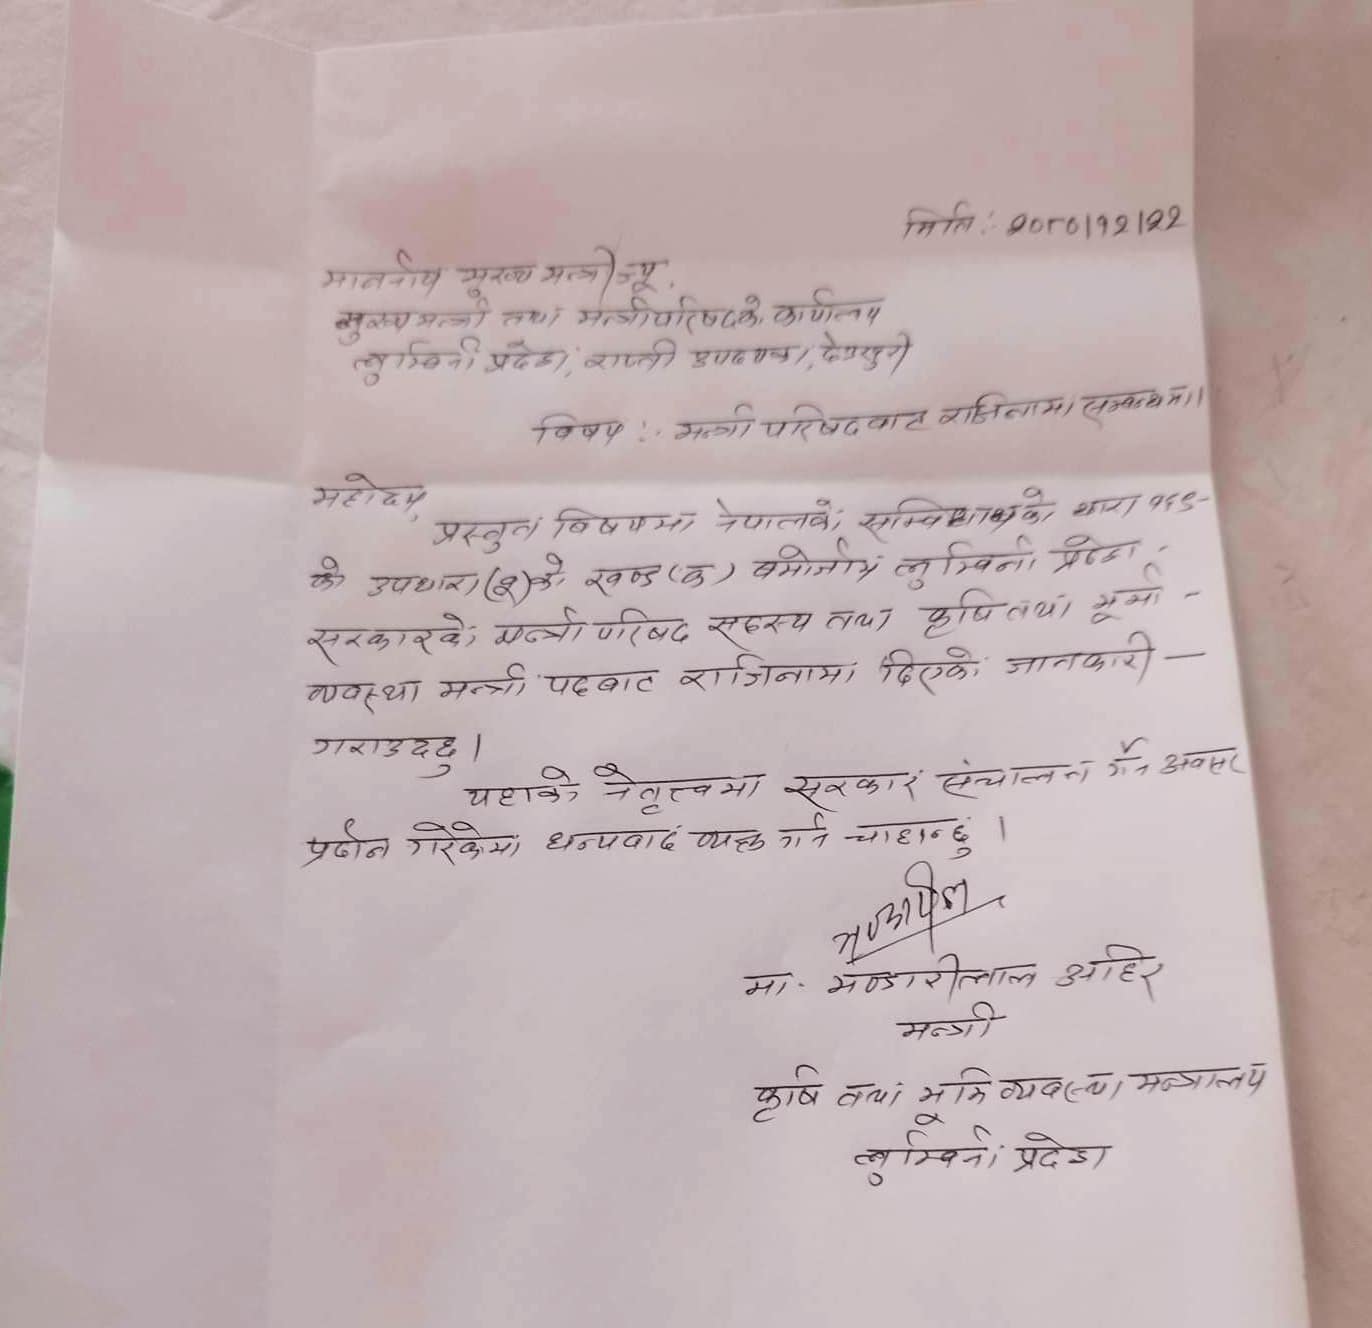 मिति : २०८०।१२।२२
माननीय मुख्य मन्त्रीज्यू,
मुख्यमन्त्री तथा मन्त्रीपरिषदको कार्यालय
लुम्बिनी प्रदेश, राप्ती उपत्यका, देउखुरी
विषय : मन्त्री परिषदबाट राजिनामा सम्बन्धमा।
महोदय,
प्रस्तुत विषयमा नेपालको संविधानको धारा १६९-
को उपधारा (२)को खण्ड (क) बमोजिम लुम्बिनी प्रदेश
सरकारको मन्त्री परिषद सदस्य तथा कृषि तथा भूमी -
व्यवस्था मन्त्री पदबाट राजिनामा दिएको जानकारी -
गराउदछु।
यहाको नेतृत्वमा सरकार संचालन गर्न अवसर
प्रदान गरेकोमा धन्यवाद व्यक्त गर्न चाहान्छु।
मा. भण्डारीलाल अहिर
मन्त्री
कृषि तथा भूमि व्यवस्था मन्त्रालय
लुम्बिनी प्रदेश